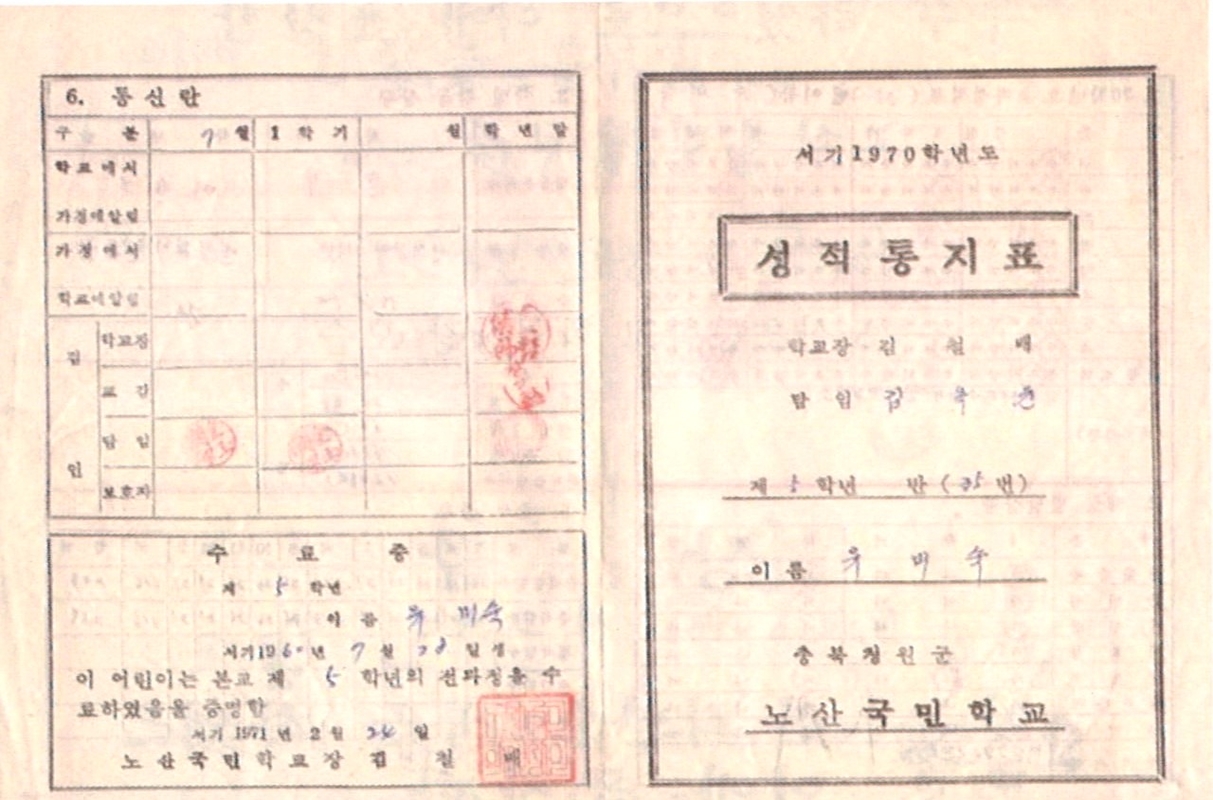 6. 통신란
구 분 7월 1학기 월 학년말
학교에서
가정에알림
가정에서
학교에알림
학교장
교 감
담 임
보호자
인
수 료 증
제 5 학년
이 름 유 미숙
서기1960년 7월 28일생
이 어린이는 본교 제 5 학년의 전과정을 수
료하였음을 증명함
서기 1971년 2월 24일
노산국민학교장 김
서기1970학년도
성적통지표
학교장 김
담 임 김
제 5 학년 반 (35번)
이름 유 미 숙
충북청원군
노산국민학교